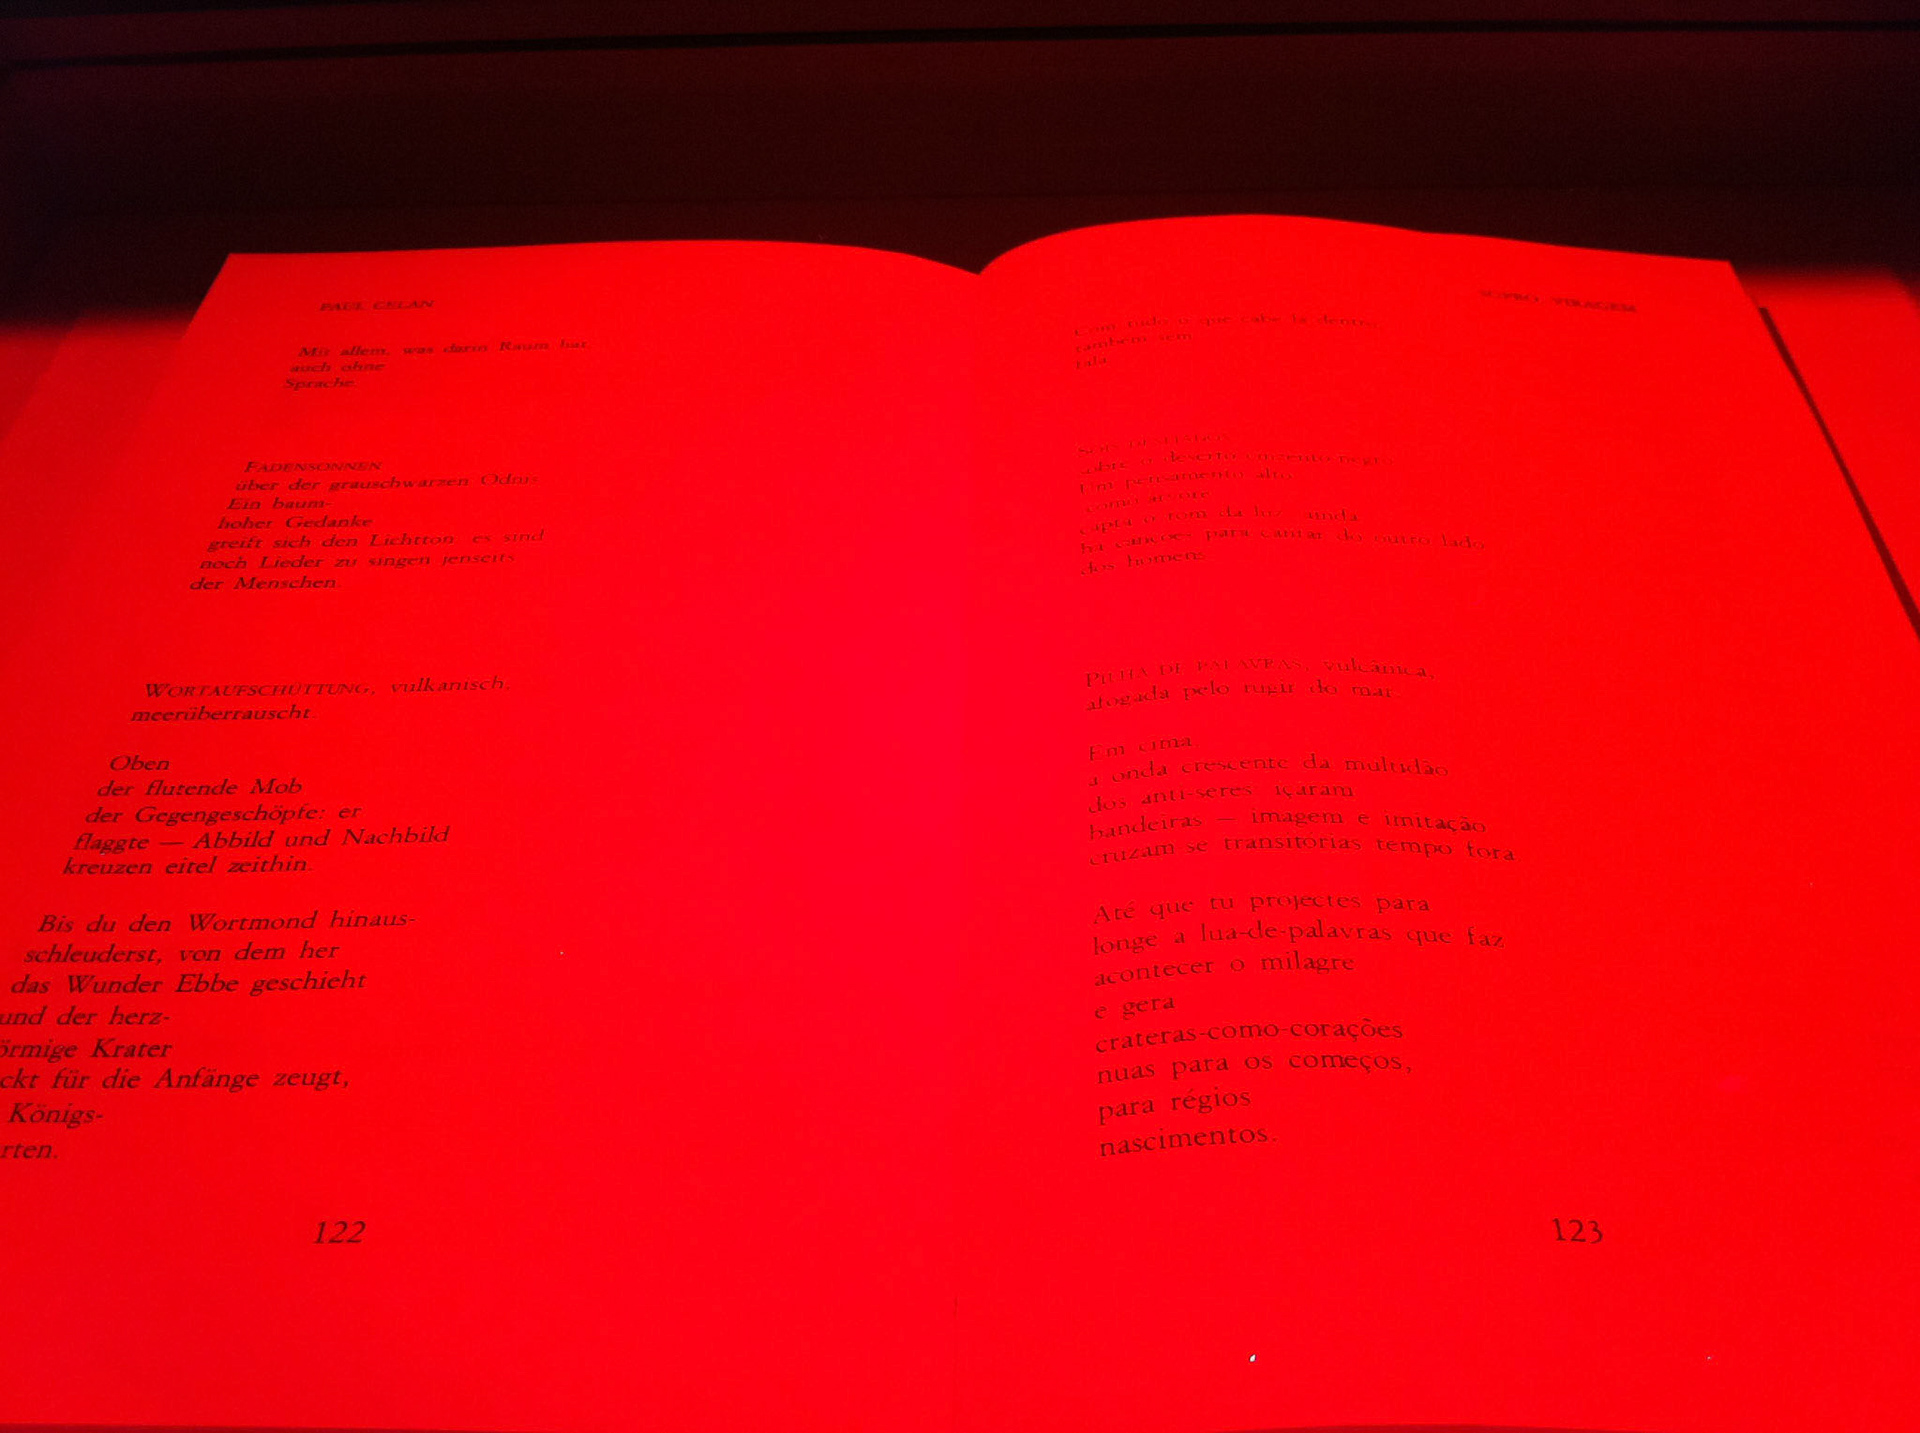 PAUL CELAN
Mit allem, was darin Raum hat,
auch ohne
Sprache.
FADENSONNEN
über der grauschwarzen Ödnis.
Ein baum-
hoher Gedanke
greift sich den Lichtton: es sind
noch Lieder zu singen jenseits
der Menschen.
WORTAUFSCHÜTTUNG, vulkanisch,
meerüberrauscht.
Oben
der flutende Mob
der Gegengeschöpfe: er
flaggte — Abbild und Nachbild
kreuzen eitel zeithin.
Bis du den Wortmond hinaus-
schleuderst, von dem her
das Wunder Ebbe geschieht
und der herz-
örmige Krater
ckt für die Anfänge zeugt,
Königs-
rten.
122
SOPRO, VIRAGEM
Com tudo o que cabe lá dentro,
também sem
fala.
SÓIS DESFIADOS
sobre o deserto cinzento-negro.
Um pensamento alto
como árvore
capta o tom da luz: ainda
há canções para cantar do outro lado
dos homens.
PILHA DE PALAVRAS, vulcânica,
afogada pelo rugir do mar.
Em cima
a onda crescente da multidão
dos anti-seres: içaram
bandeiras — imagem e imitação
cruzam-se transitórias tempo fora.
Até que tu projectes para
longe a lua-de-palavras que faz
acontecer o milagre
e gera
crateras-como-corações
nuas para os começos,
para régios
nascimentos.
123